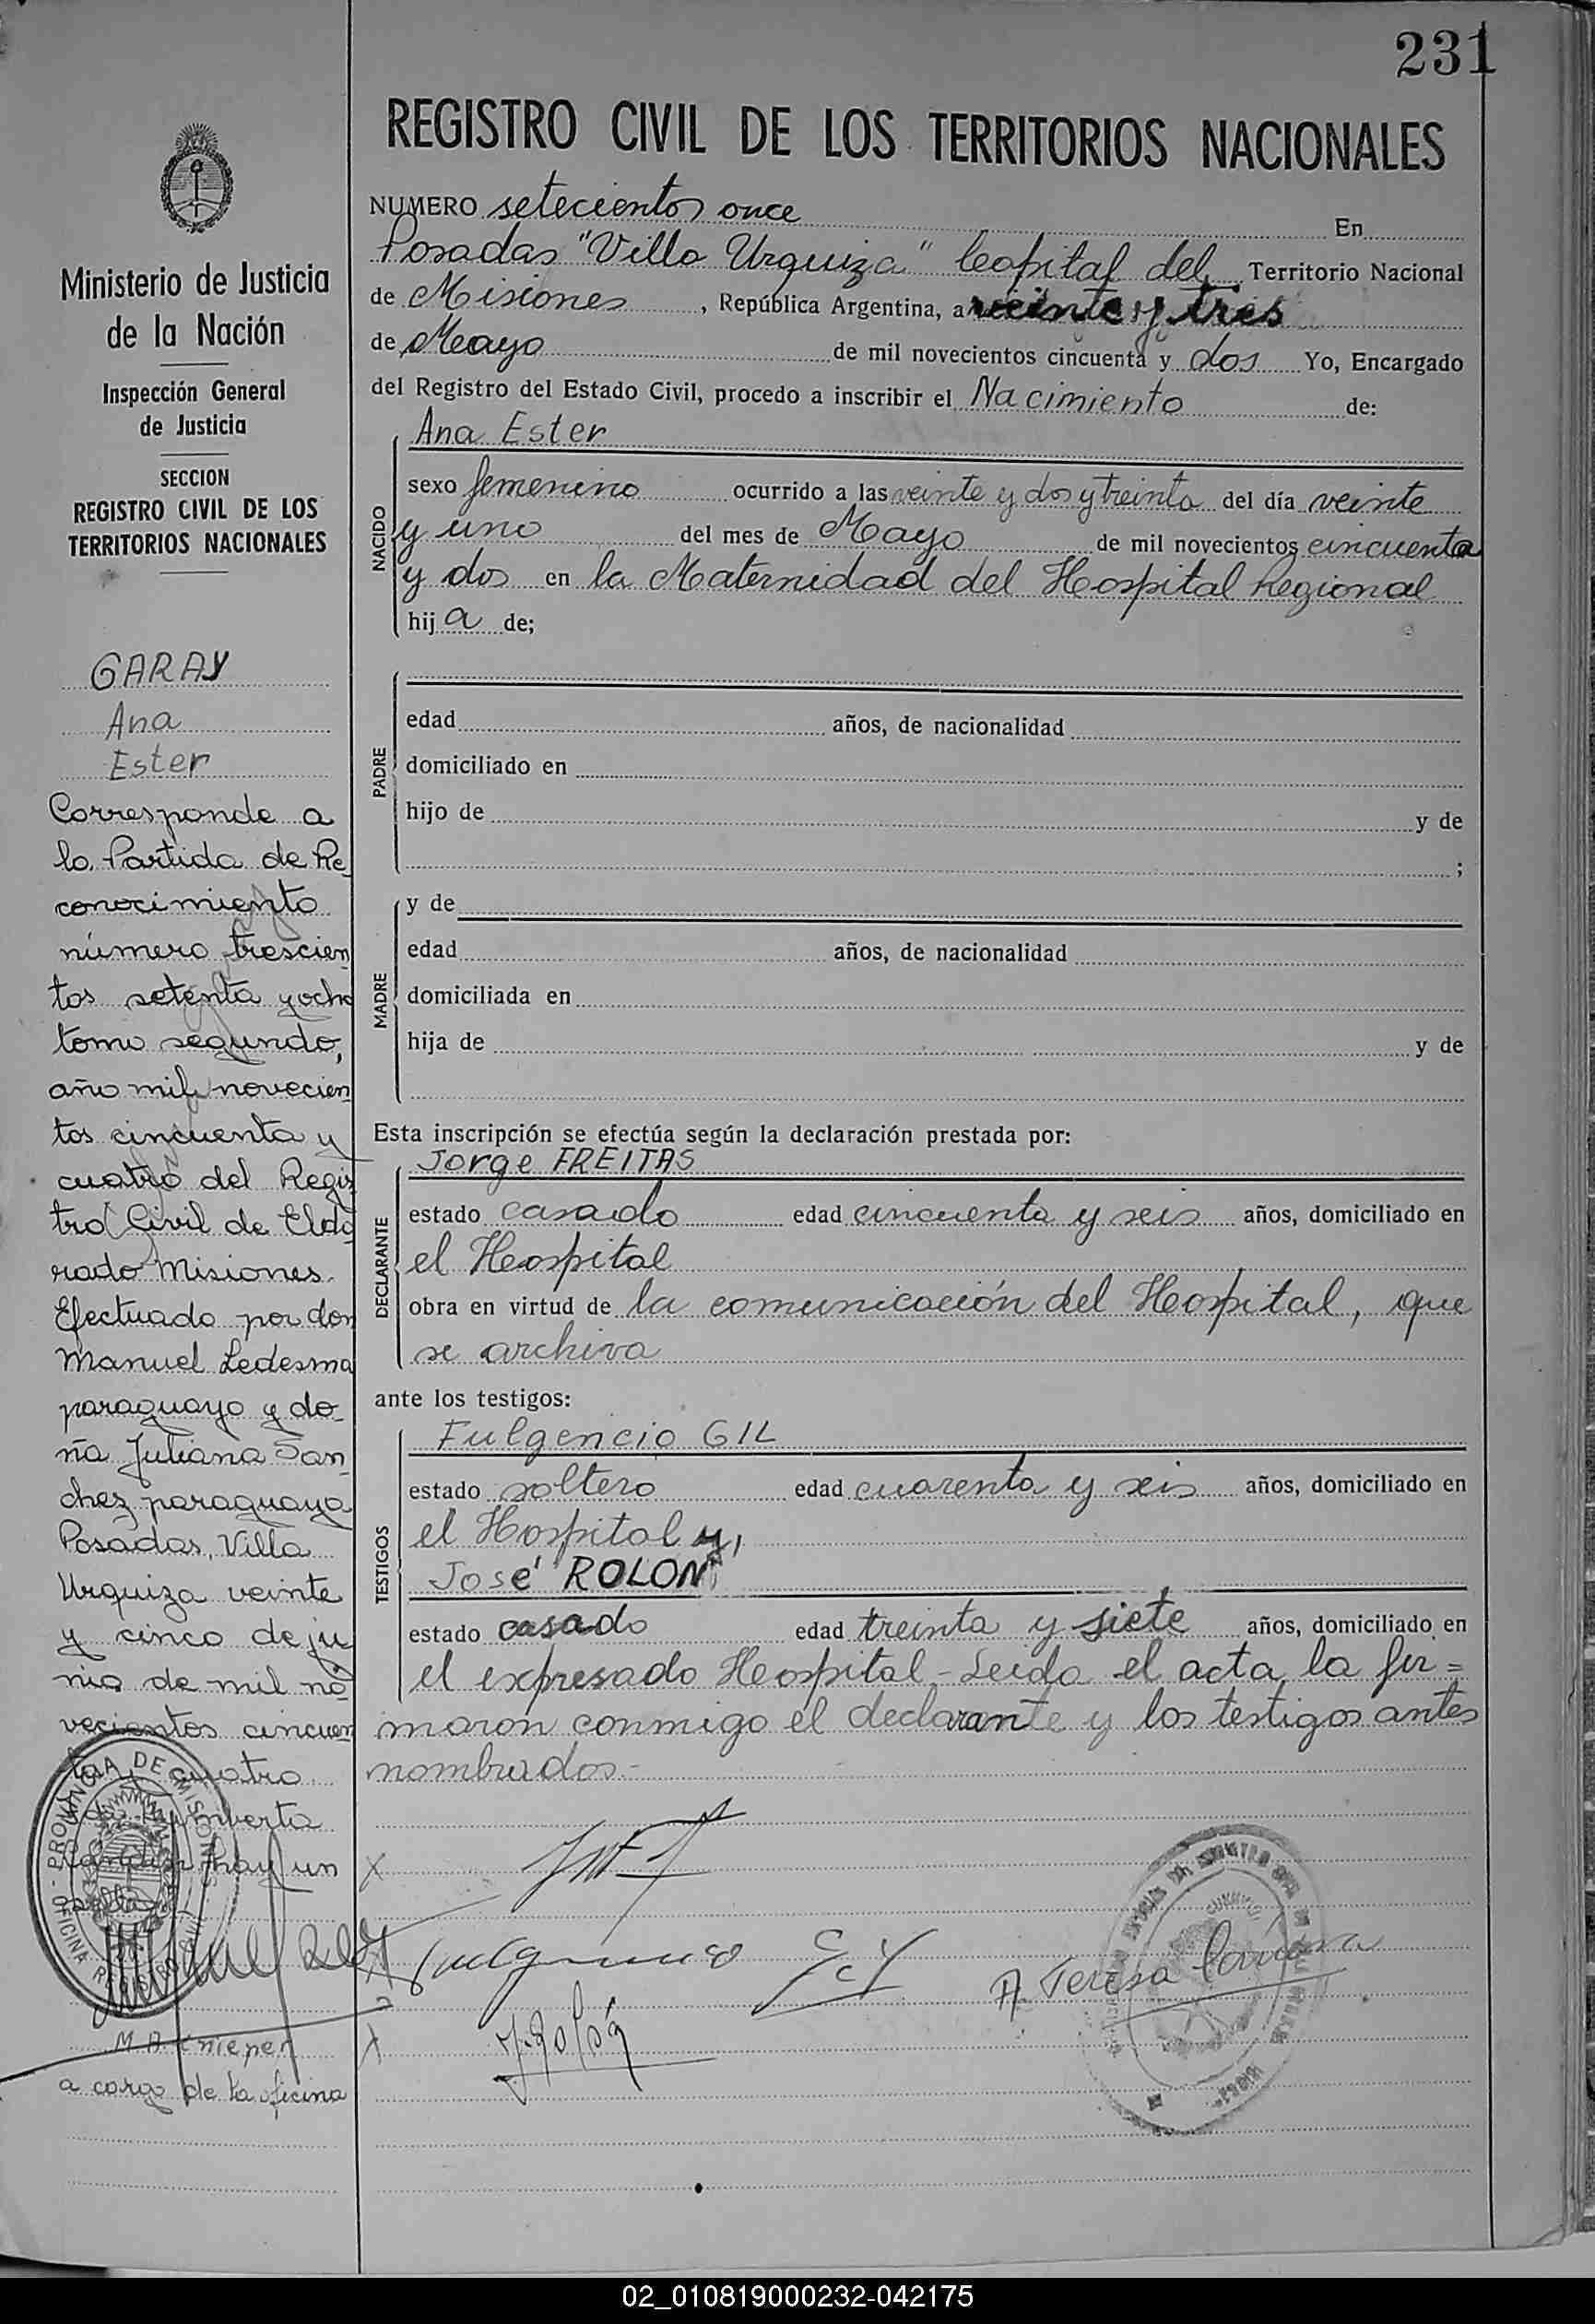 231
REGISTRO CIVIL DE LOS TERRITORIOS NACIONALES
Ministerio de Justicia
de la Nación
Inspección General
de Justicia
SECCION
REGISTRO CIVIL DE LOS
TERRITORIOS NACIONALES
GARAY
Ana
Ester
Corresponde a
la Partida de Re
conocimiento
número trescien
tos setenta y ocho
tomo segundo,
año mil novecien
tos cincuenta y
cuatro del Regis
tro Civil de Eldo
rado Misiones.
Efectuado por don
Manuel Ledesma
paraguayo y do
ña Juliana San
chez paraguaya
Posadas, Villa
Urquiza veinte
y cinco de ju
nio de mil no
vecientos cincuen
ta y cuatro
hay un
PROVINCIA DE MISIONES
OFICINA
a cargo de la oficina
NUMERO setecientos once En
Posadas "Villa Urquiza" Capital del Territorio Nacional
de Misiones, República Argentina, a veinte y tres
de Mayo de mil novecientos cincuenta y dos Yo, Encargado
del Registro del Estado Civil, procedo a inscribir el Nacimiento de:
NACIDO
Ana Ester
sexo femenino ocurrido a las veinte y dos y treinta del día veinte
y uno del mes de Mayo de mil novecientos cincuenta
y dos en la Maternidad del Hospital Regional
hij a de;
PADRE
edad años, de nacionalidad
domiciliado en
hijo de y de
;
MADRE
y de
edad años, de nacionalidad
domiciliada en
hija de y de
Esta inscripción se efectúa según la declaración prestada por:
DECLARANTE
Jorge FREITAS
estado casado edad cincuenta y seis años, domiciliado en
el Hospital
obra en virtud de la comunicación del Hospital, que
se archiva
ante los testigos:
TESTIGOS
Fulgencio GIL
estado soltero edad cuarenta y seis años, domiciliado en
el Hospital y,
José ROLON
estado casado edad treinta y siete años, domiciliado en
el expresado Hospital - Leida el acta la fir=
maron conmigo el declarante y los testigos antes
nombrados.-
Fulgencio Gil
J. Rolón
A. Teresa
02_010819000232-042175